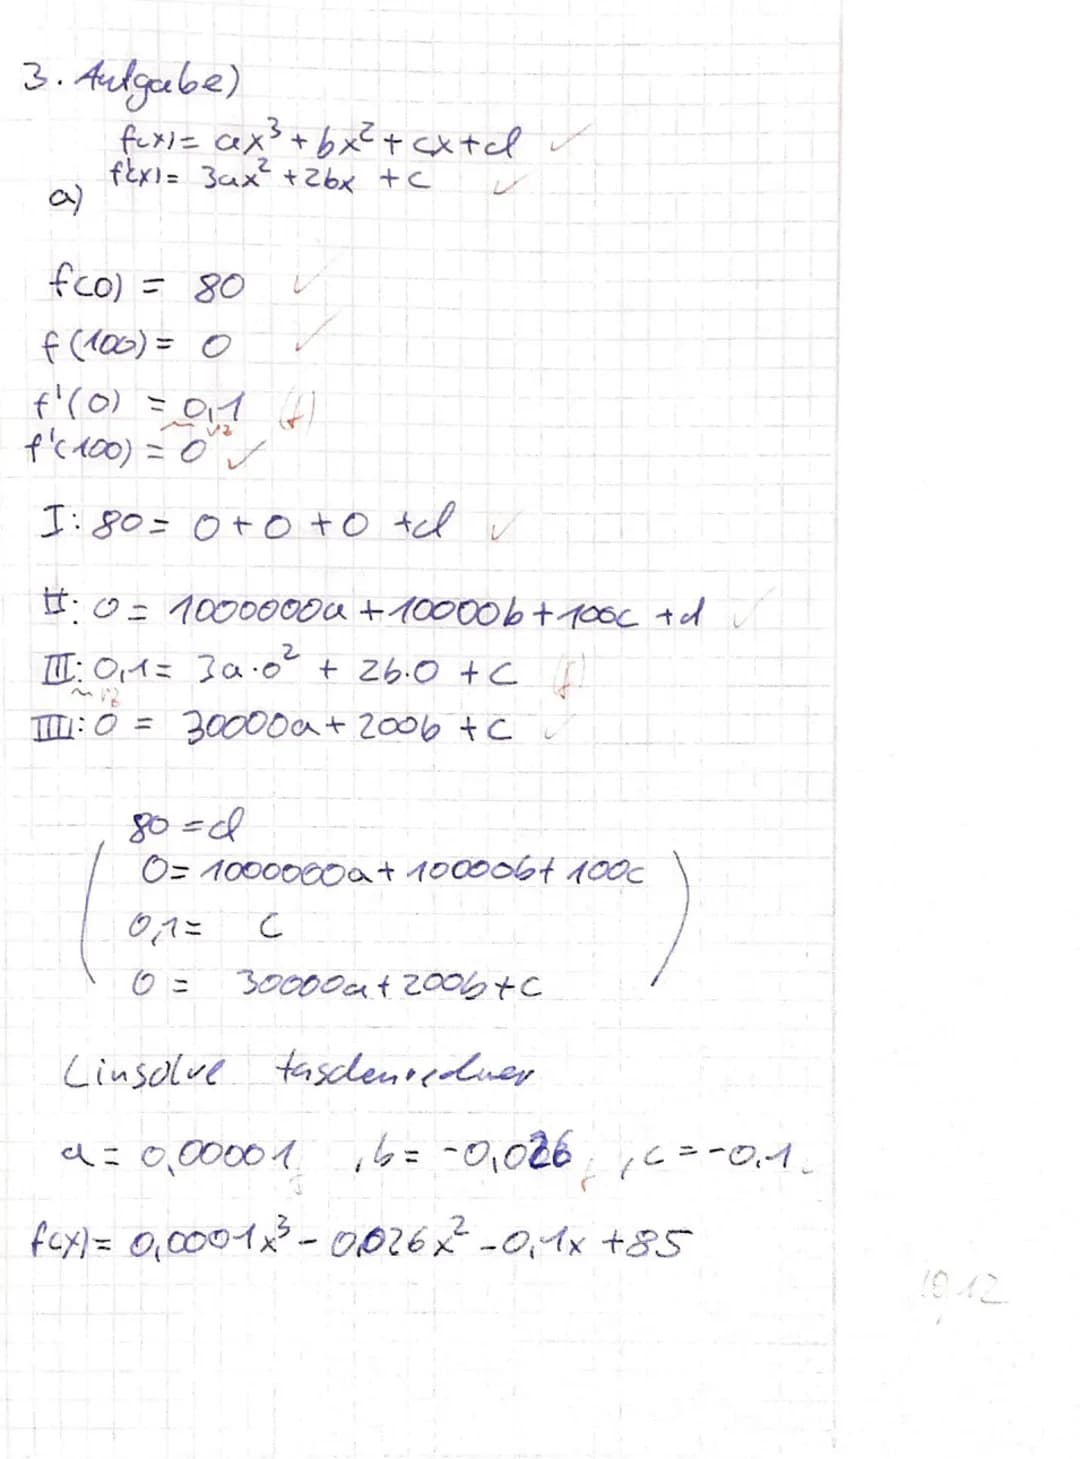 3. Aufgabe)
f(x) = ax³ + bx² + cx + d ✓
f'(x) = 3ax² + 2bx + c ✓
a)
f(0) = 80 ✓
f(100) = 0 ✓
f'(0) = 0,1 (f)
vz
f'(100) = 0 ✓
I: 80 = 0 + 0 + 0 + d ✓
II: 0 = 1000000a + 10000b + 100c + d ✓
III: 0,1 = 3a·0² + 2b·0 + c (f)
vz
IIII: 0 = 30000a + 200b + c ✓
80 = d
0 = 1000000a + 10000b + 100c
0,1 = c
0 = 30000a + 200b + c
Linsolve taschenrechner
a = 0,00001 f , b = -0,026 f , c = -0,1
f(x) = 0,0001x³ - 0,026x² - 0,1x + 85